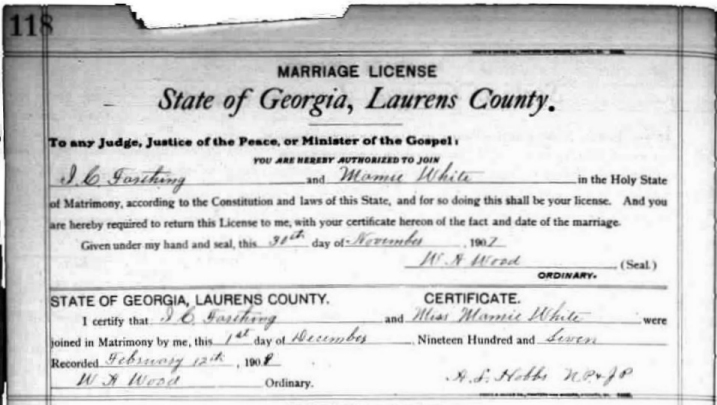 118
MARRIAGE LICENSE
State of Georgia, Laurens County.
To any Judge, Justice of the Peace, or Minister of the Gospel:
YOU ARE HEREBY AUTHORIZED TO JOIN
I C Farthing and Mamie White in the Holy State
of Matrimony, according to the Constitution and laws of this State, and for so doing this shall be your license. And you
are hereby required to return this License to me, with your certificate hereon of the fact and date of the marriage.
Given under my hand and seal, this 30th day of November, 1907
W A Wood (Seal)
ORDINARY.
STATE OF GEORGIA, LAURENS COUNTY. CERTIFICATE.
I certify that I C Farthing and Miss Mamie White were
joined in Matrimony by me, this 1st day of December, Nineteen Hundred and Seven
Recorded February 12th, 1908
W A Wood Ordinary. A. L. Hobbs N.P. & J P